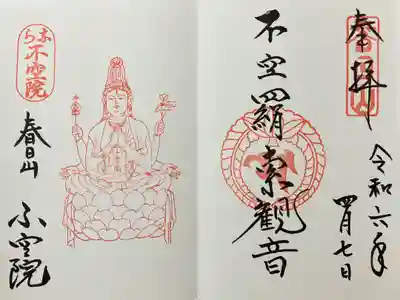 奉拝
令和六年
四月七日
不空羂索観音
なら
不空院
春日山
不空院